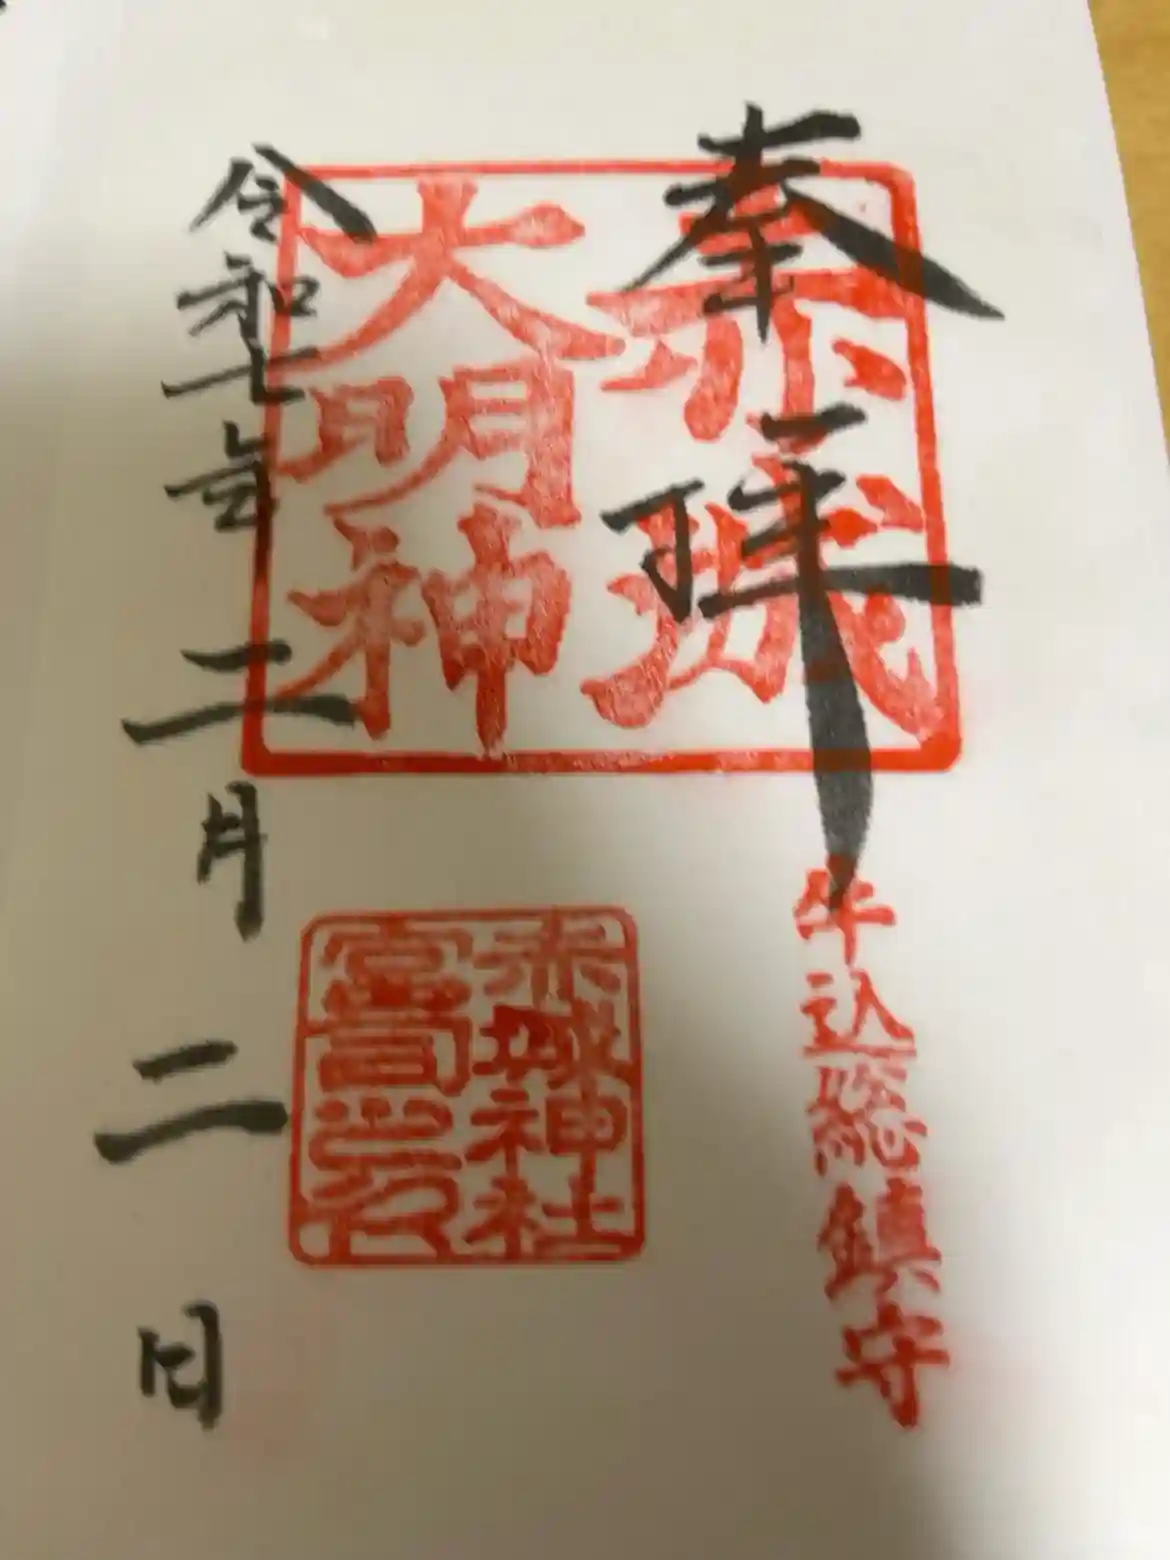 奉拝
赤城
大明神
牛込総鎮守
赤城神社
宮司之印
令和七年二月二日